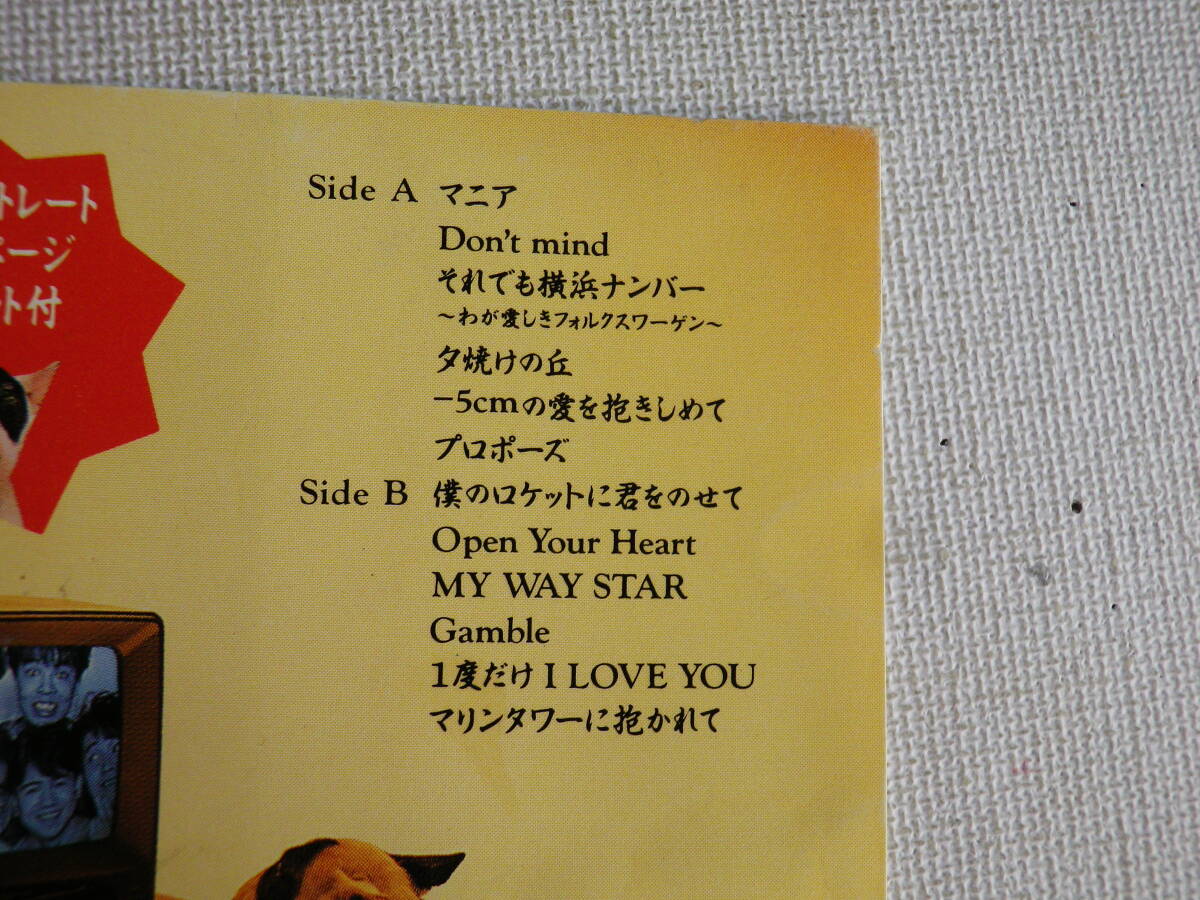 トレート
ページ
ット付
Side A マニア
Don't mind
それでも横浜ナンバー
～わが愛しきフォルクスワーゲン～
夕焼けの丘
−5cmの愛を抱きしめて
プロポーズ
Side B 僕のロケットに君をのせて
Open Your Heart
MY WAY STAR
Gamble
1度だけ I LOVE YOU
マリンタワーに抱かれて